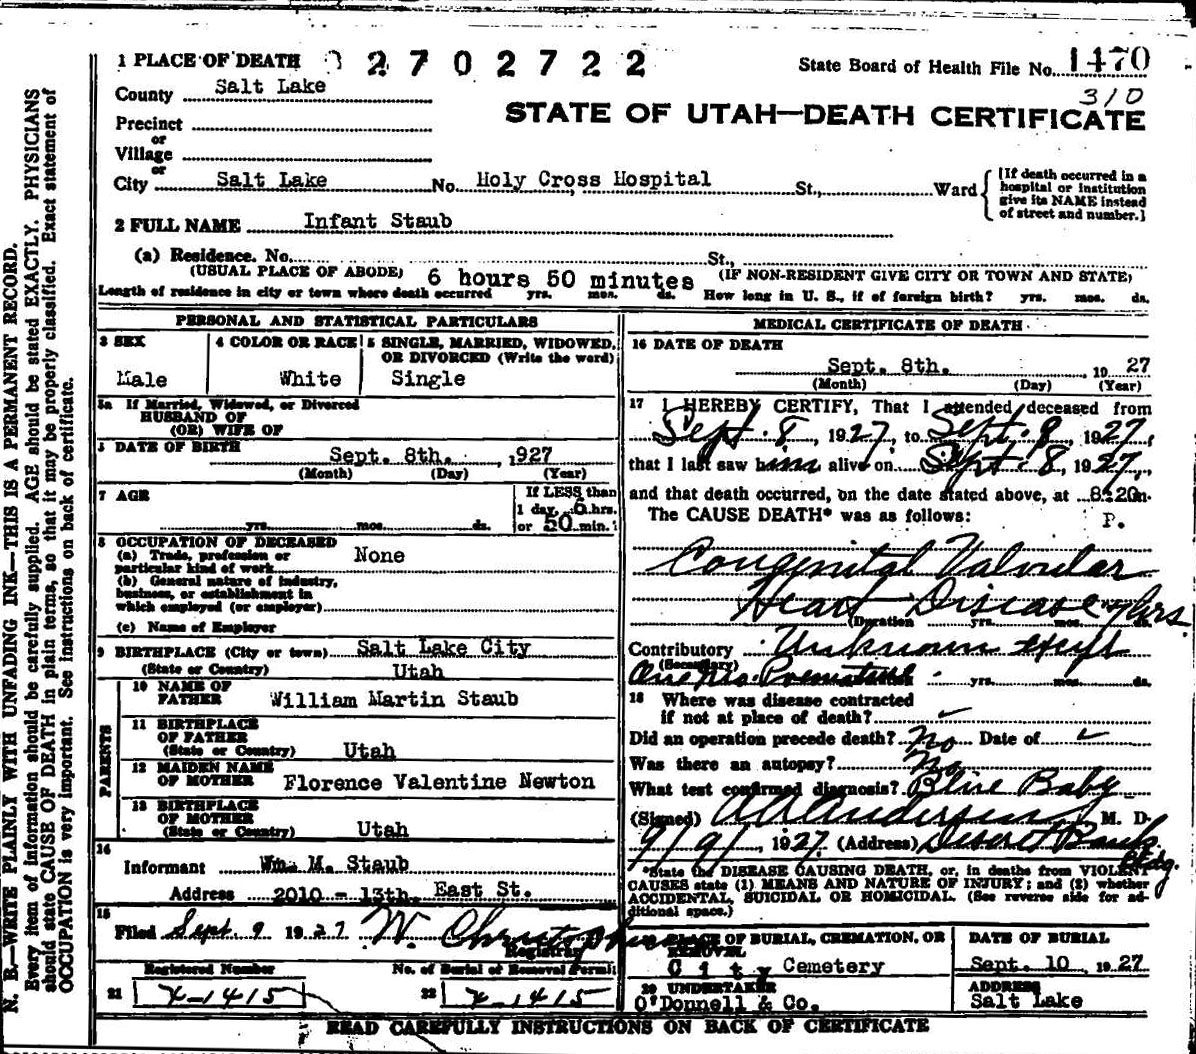 1 PLACE OF DEATH 2702722
State Board of Health File No. 1470
310
County Salt Lake
STATE OF UTAH—DEATH CERTIFICATE
Precinct
or
Village
or
City Salt Lake No. Holy Cross Hospital St., Ward
[If death occurred in a
hospital or institution
give its NAME instead
of street and number.]
2 FULL NAME Infant Staub
(a) Residence. No. St.,
(USUAL PLACE OF ABODE) 6 hours 50 minutes (IF NON-RESIDENT GIVE CITY OR TOWN AND STATE)
Length of residence in city or town where death occurred yrs. mos. ds. How long in U. S., if of foreign birth? yrs. mos. ds.
PERSONAL AND STATISTICAL PARTICULARS
3 SEX
Male
4 COLOR OR RACE
White
5 SINGLE, MARRIED, WIDOWED,
OR DIVORCED (Write the word)
Single
5a If Married, Widowed, or Divorced
HUSBAND OF
(OR) WIFE OF
DATE OF BIRTH
Sept. 8th. , 1927
(Month) (Day) (Year)
7 AGE
yrs. mos. ds.
If LESS than
1 day, 6 hrs.
or 50 min.
8 OCCUPATION OF DECEASED
(a) Trade, profession or
particular kind of work None
(b) General nature of industry,
business, or establishment in
which employed (or employer)
(c) Name of Employer
9 BIRTHPLACE (City or town) Salt Lake City
(State or Country) Utah
PARENTS
10 NAME OF
FATHER William Martin Staub
11 BIRTHPLACE
OF FATHER
(State or Country) Utah
12 MAIDEN NAME
OF MOTHER Florence Valentine Newton
13 BIRTHPLACE
OF MOTHER
(State or Country) Utah
14
Informant Wm. M. Staub
Address 2010 - 13th. East St.
15
Filed Sept. 9 1927 W.
Registrar
Registered Number
No. of Burial or Removal Permit
21 1415
22 1415
MEDICAL CERTIFICATE OF DEATH
16 DATE OF DEATH
Sept. 8th. , 1927
(Month) (Day) (Year)
17 I HEREBY CERTIFY, That I attended deceased from
Sept. 8, 1927, to Sept. 8, 1927,
that I last saw him alive on Sept. 8, 1927,
and that death occurred, on the date stated above, at 8:20m.
The CAUSE DEATH* was as follows: P.
Congenital Valvular
Heart Disease hrs.
(Duration yrs. mos. ds.
Contributory Unknown except
(Secondary)
One Mo. Premature yrs. mos. ds.
18 Where was disease contracted
if not at place of death?
Did an operation precede death? No Date of
Was there an autopsy? No
What test confirmed diagnosis? Blue Baby
(Signed) Andersen, M. D.
9/9/, 1927 (Address) Deseret Bank
Bldg.
*State the DISEASE CAUSING DEATH, or, in deaths from VIOLENT
CAUSES state (1) MEANS AND NATURE OF INJURY; and (2) whether
ACCIDENTAL, SUICIDAL OR HOMICIDAL. (See reverse side for ad-
ditional space.)
PLACE OF BURIAL, CREMATION, OR
REMOVAL
City Cemetery
DATE OF BURIAL
Sept. 10, 1927
20 UNDERTAKER
O'Donnell & Co.
ADDRESS
Salt Lake
READ CAREFULLY INSTRUCTIONS ON BACK OF CERTIFICATE
N. B.—WRITE PLAINLY WITH UNFADING INK—THIS IS A PERMANENT RECORD.
Every item of information should be carefully supplied. AGE should be stated EXACTLY. PHYSICIANS
should state CAUSE OF DEATH in plain terms, so that it may be properly classified. Exact statement of
OCCUPATION is very important. See instructions on back of certificate.